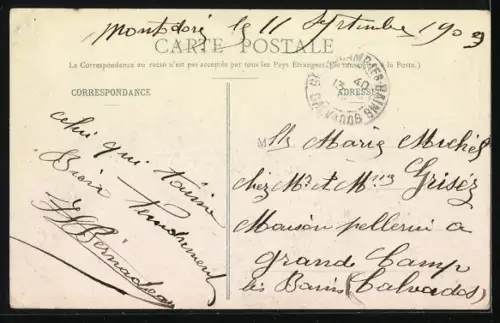 Montdoré le 11 Septembre 1909
CARTE POSTALE
La Correspondance au recto n'est pas acceptée par tous les Pays Étrangers. de la Poste.)
CORRESPONDANCE
ADRESSE
celui qui t'aime
Bien Tendrement
Bernadeau
GRANDCAMP-LES-BAINS CALVADOS
13 40
Mlle Marie Michel
chez Mr et Mme Grisez
Maison pellerin a
grand Camp
les Bains (Calvados)